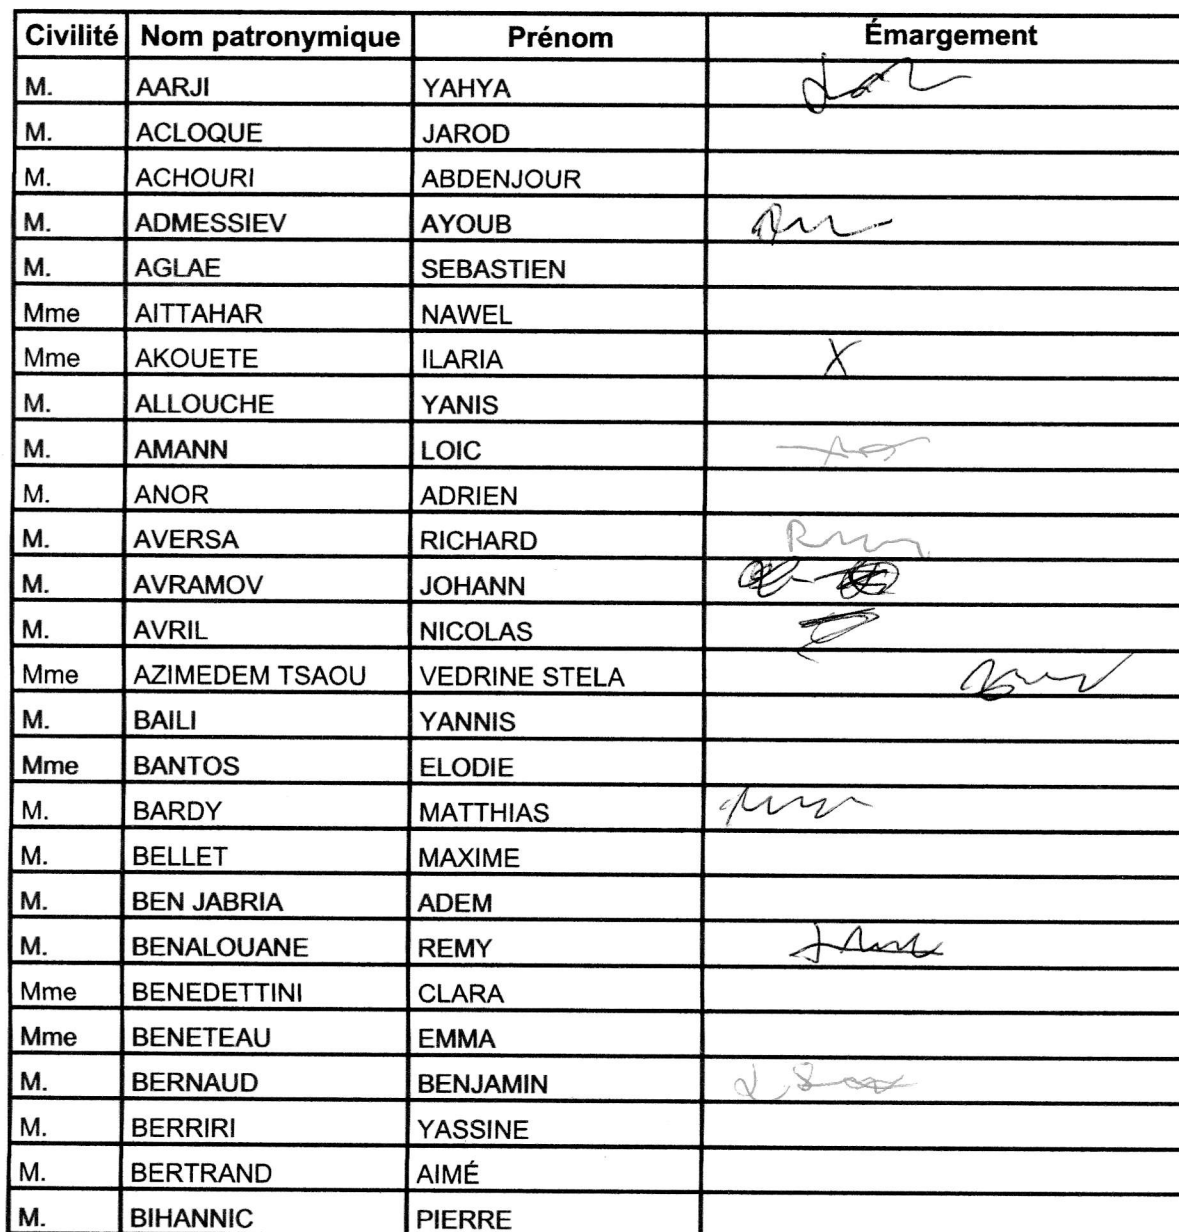 Civilité Nom patronymique Prénom Émargement
M. AARJI YAHYA
M. ACLOQUE JAROD
M. ACHOURI ABDENJOUR
M. ADMESSIEV AYOUB
M. AGLAE SEBASTIEN
Mme AITTAHAR NAWEL
Mme AKOUETE ILARIA X
M. ALLOUCHE YANIS
M. AMANN LOIC
M. ANOR ADRIEN
M. AVERSA RICHARD
M. AVRAMOV JOHANN
M. AVRIL NICOLAS
Mme AZIMEDEM TSAOU VEDRINE STELA
M. BAILI YANNIS
Mme BANTOS ELODIE
M. BARDY MATTHIAS
M. BELLET MAXIME
M. BEN JABRIA ADEM
M. BENALOUANE REMY
Mme BENEDETTINI CLARA
Mme BENETEAU EMMA
M. BERNAUD BENJAMIN
M. BERRIRI YASSINE
M. BERTRAND AIMÉ
M. BIHANNIC PIERRE